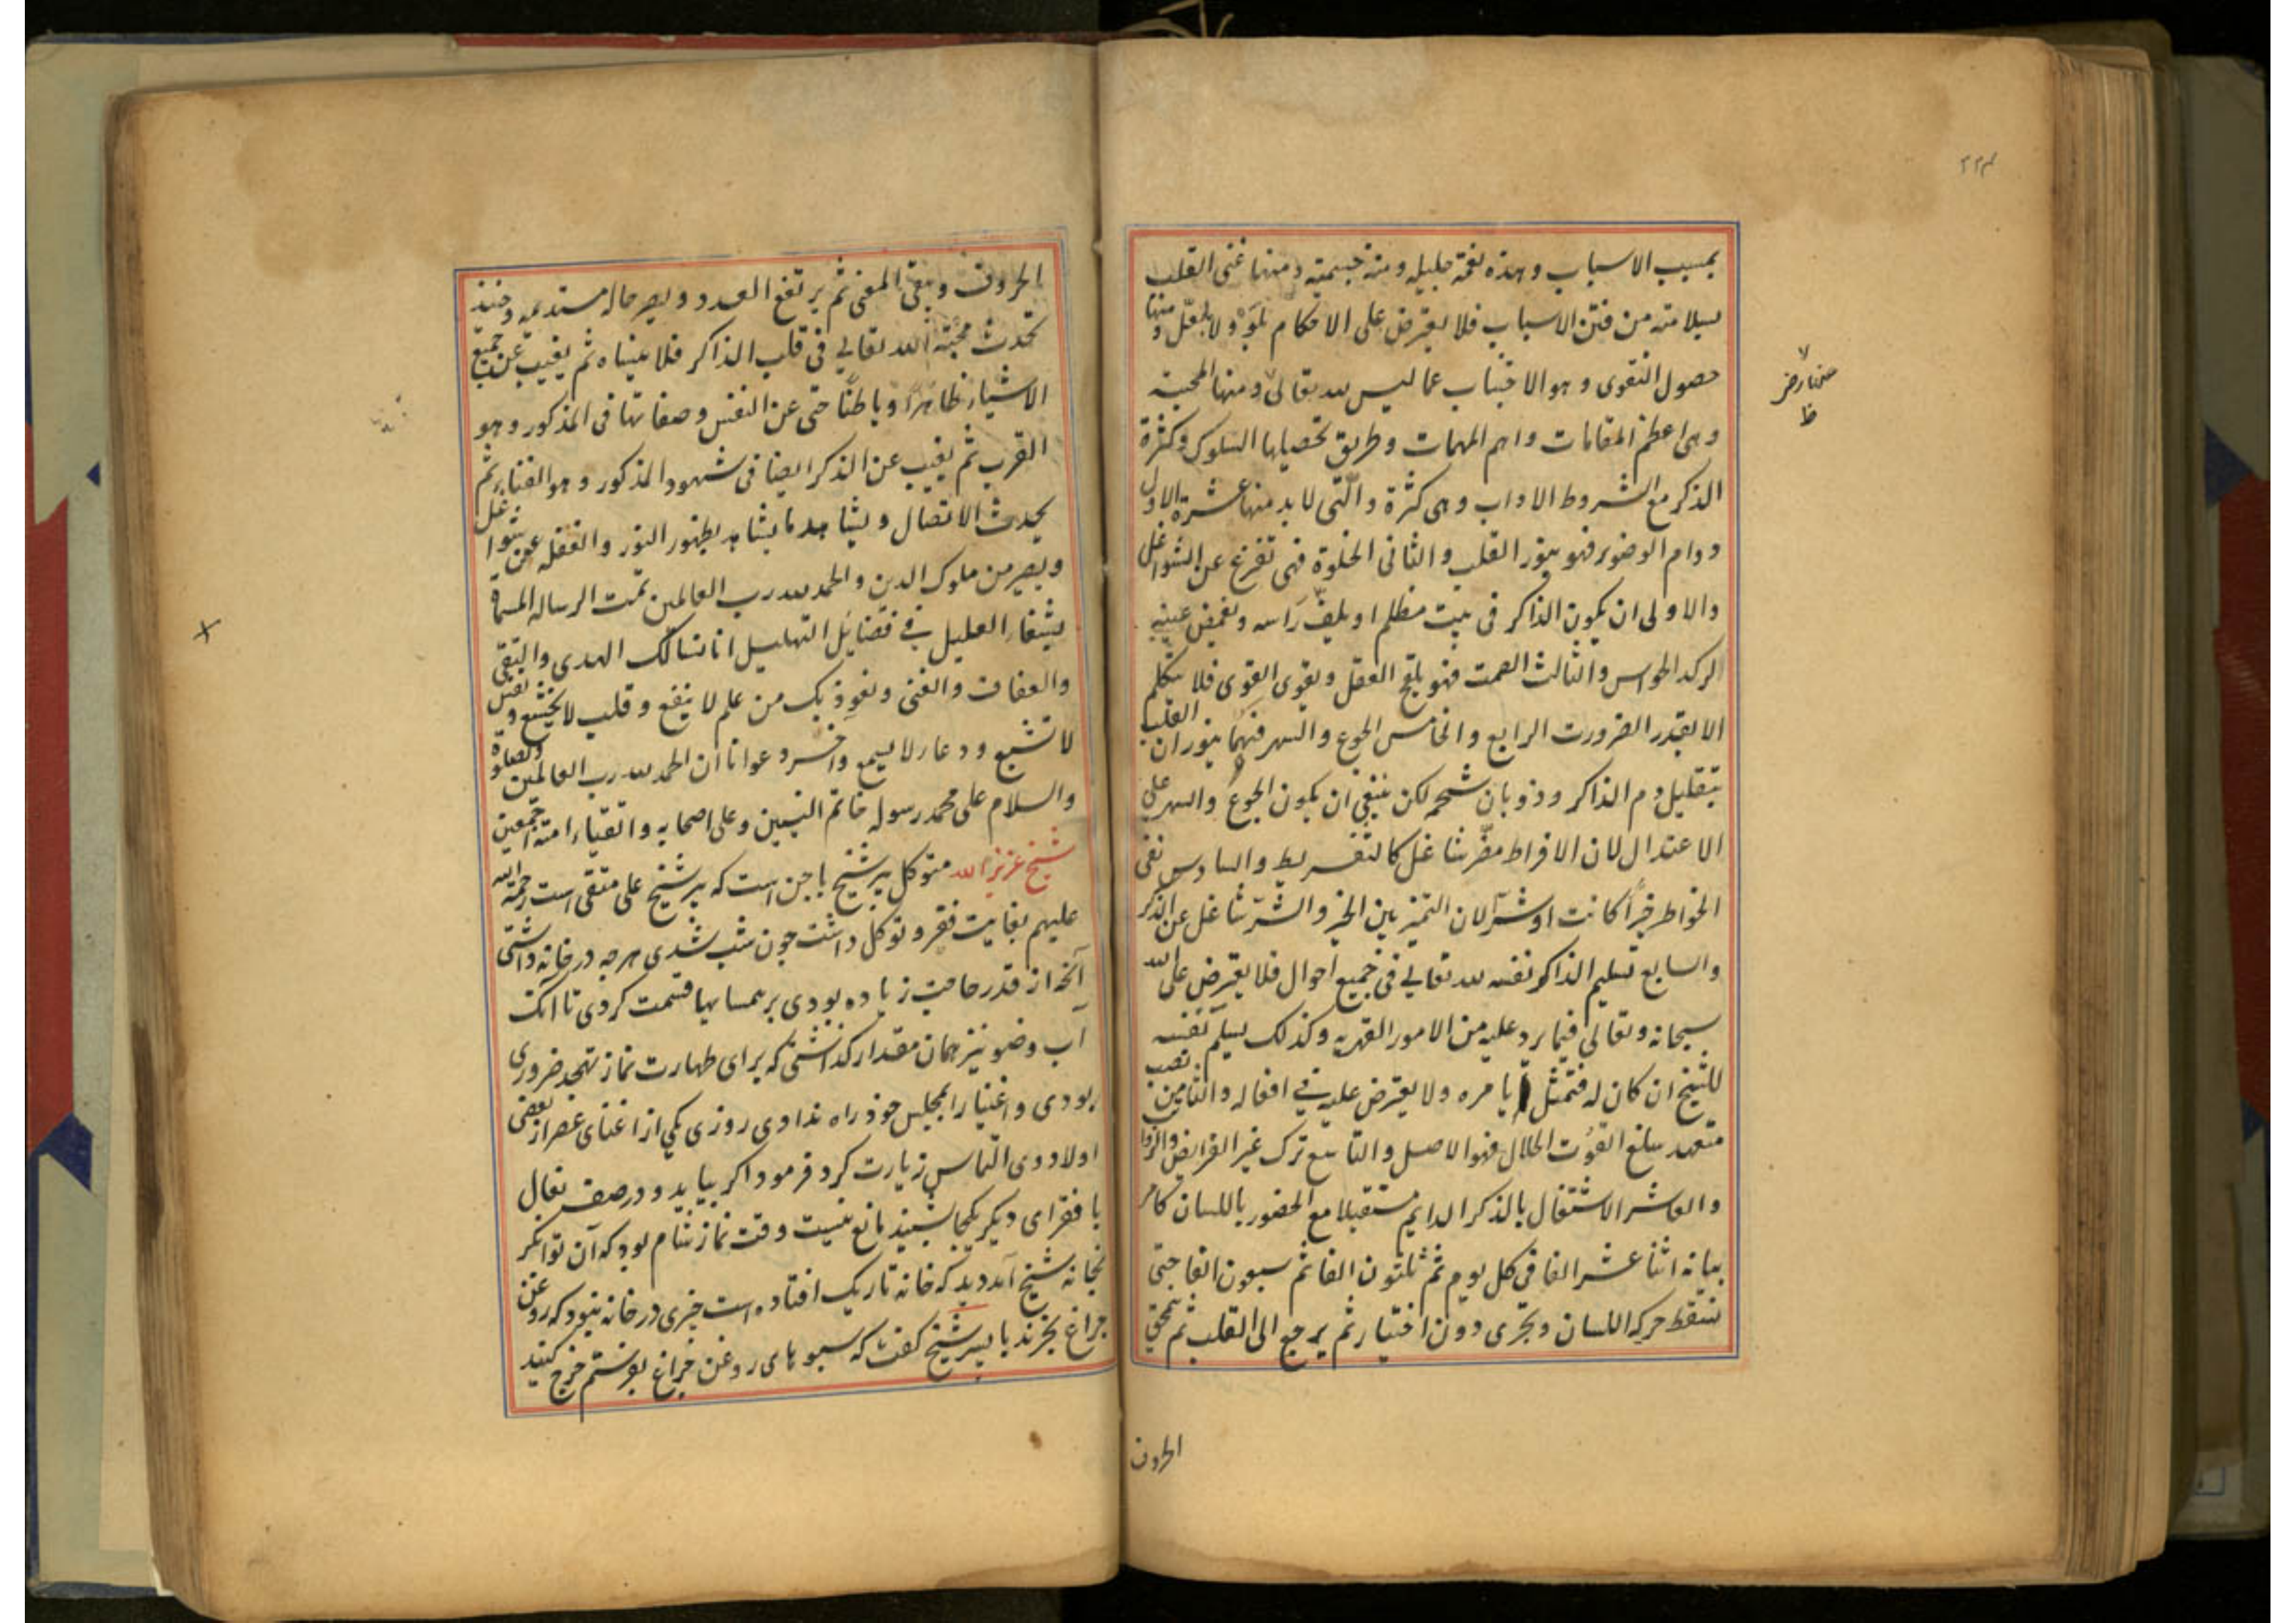 ۲۲۴
بمسبب الاسباب وهذه نعمة جليله ومنة جسيمة ومنها غنى القلب
بسلامته من فتن الاسباب فلا يعترض على الاحكام بلو ولا بلعل ومنها
حصول التقوى وهو الاجتناب عما ليس لله تعالى ومنها المحبة
وهى اعظم المقامات واهم المهمات وطريق تحصيلها السلوك وكثرة
الذكر مع الشروط الاداب وهى كثرة والتى لا بد منها عشرة الاول
دوام الوضوء فهو ينور القلب والثانى الخلوة فهى تفرغ عن الشواغل
والاولى ان يكون الذاكر فى بيت مظلم او يلف رأسه ويغمض عينيه
الركد الحواس والثالث الصمت فهو يلقح العقل ويقوى القوى فلا يتكلم
الا بقدر الضرورت الرابع والخامس الجوع والسهر فهما ينوران القلب
بتقليل دم الذاكر وذوبان شحمه لكن ينبغى ان يكون الجوع والسهر على
الاعتدال لان الافراط مضر شاغل كالتفريط والسادس نفى
الخواطر خيرا كانت او شرا لان التميز بين الخير والشر شاغل عن الذكر
والسابع تسليم الذاكر نفسه لله تعالى فى جميع احوال فلا يعترض على الله
سبحانه وتعالى فيما يرد عليه من الامور القهريه وكذلك يسلم نفسه
للشيخ ان كان له فتمثل بامره ولا يعترض عليه فى افعاله والثامن نصب
متعهد ببلغ القوت الحلال فهو الاصل والتاسع ترك غير الفرايض والزوا
والعاشر الاشتغال بالذكر الدايم مستقبلا مع الحضور باللسان كامر
بيانه اثنا عشر الفا فى كل يوم ثم ثلثون الفا ثم سبعون الفا حتى
تسقط حركة اللسان ويجرى دون اختيار ثم يرجع الى القلب ثم تمحى
الحروف
الحروف ويبقى المعنى ثم يرتفع العدد ويصير حاله مستديمه وحينئذ
تحدث محبة الله تعالى فى قلب الذاكر فلا ينساه ثم يغيب عن جميع
الاشياء ظاهرا وباطنا حتى عن النفس وصفاتها فى المذكور وهو
القرب ثم يغيب عن الذكر ايضا فى شهود المذكور وهو الفناء ثم
يحدث الاتصال ويشاهد ما يشاهد بظهور النور والغفله عن شواغل
ويصير من ملوك الدين والحمد لله رب العالمين تمت الرساله المسماة
بشفاء العليل فى فضايل التهليل انا نسالك الهدى والتقى
والعفاف والغنى ونعوذ بك من علم لا ينفع وقلب لا يخشع ونفس
لا تشبع ودعاء لا يسمع واخر دعوانا ان الحمد لله رب العالمين والصلوة
والسلام على محمد رسوله خاتم النبيين وعلى اصحابه واتقياء امته اجمعين
شيخ عزيز الله متوكل پير شيخ باجن است كه پير شيخ على متقى است رحمة الله
عليهم بغايت فقر و توكل داشت چون شب شدى هر چه در خانه داشتى
آنچه از قدر حاجت زياده بودى بر همسايها قسمت كردى تا آنك
آب وضو نيز همان مقدار گذاشتى كه براى طهارت نماز تهجد ضرورى
بودى و اغنيا را بمجلس خود راه ندادى روزى يكى از اغنياى عصر از بعضى
اولاد وى التماس زيارت كرد فرمود اگر بيايد و در صف نعال
با فقراى ديگر يكجا نشيند مانع نيست وقت نماز شام بود كه آن توانگر
بخانه شيخ آمد ديد كه خانه تاريك افتاده است چيزى در خانه نبود كه روغن
چراغ بخرند با پسر شيخ گفت كه سبوهاى روغن چراغ بفرستم خرج كنيد